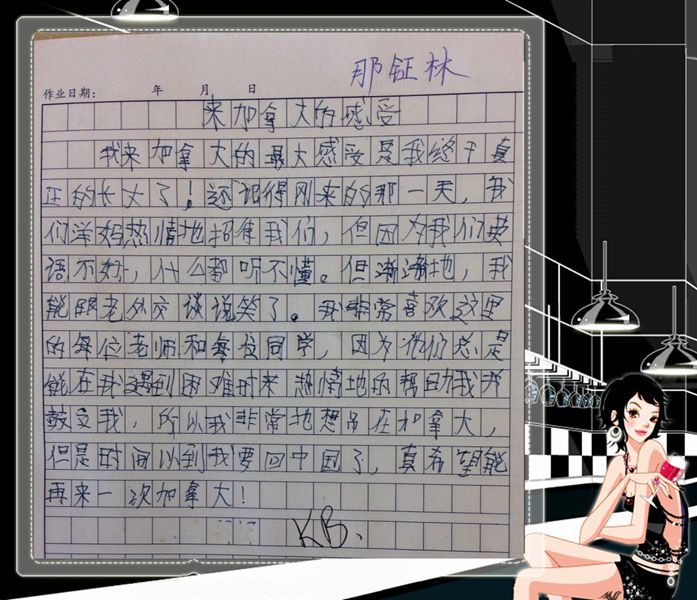 那钲林
作业日期: 年 月 日
来加拿大的感受
我来加拿大的最大感受是我终于真
正的长大了！还记得刚来的那一天，我
们洋妈热情地招待我们，但因为我们英
语不好，什么都听不懂。但渐渐地，我
能跟老外交谈说笑了。我非常喜欢这里
的每位老师和每位同学，因为他们总是
能在我遇到困难时来热情地的帮助我并
鼓立我，所以我非常地想留在加拿大，
但是时间以到我要回中国了，真希望能
再来一次加拿大！
KB.